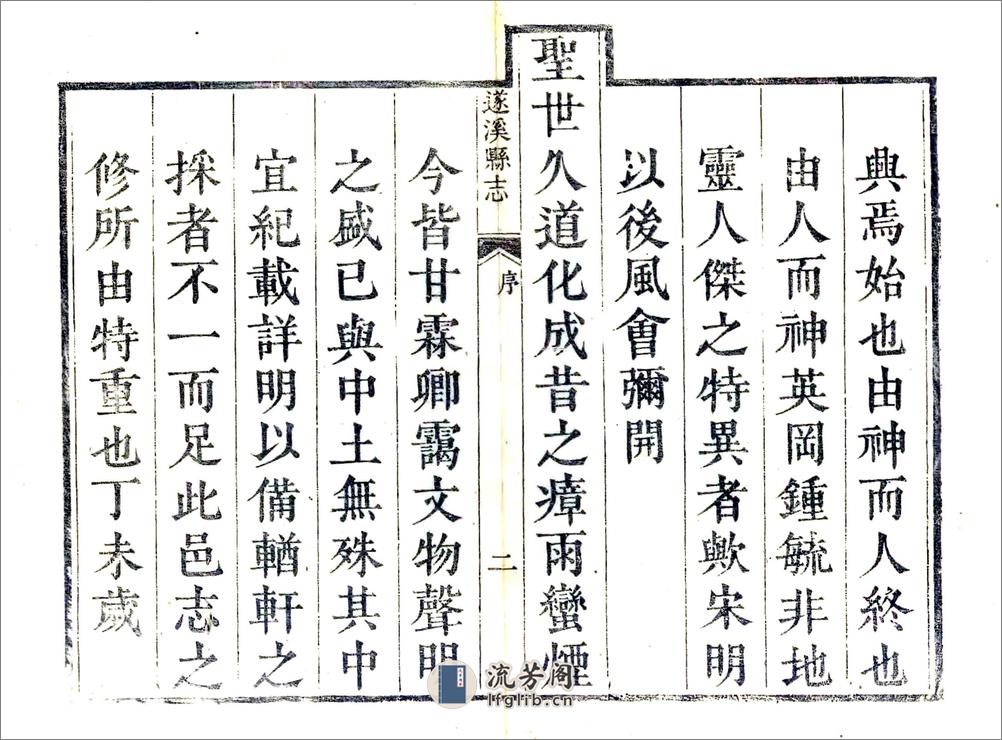 興焉始也由神而人終也
由人而神英岡鍾毓非地
靈人傑之特異者歟宋明
以後風會彌開
聖世久道化成昔之瘴雨蠻煙
遂溪縣志
序
二
今皆甘霖卿靄文物聲明
之盛已與中土無殊其中
宜紀載詳明以備輶軒之
採者不一而足此邑志之
修所由特重也丁未歲
流芳阁
lfglib.cn